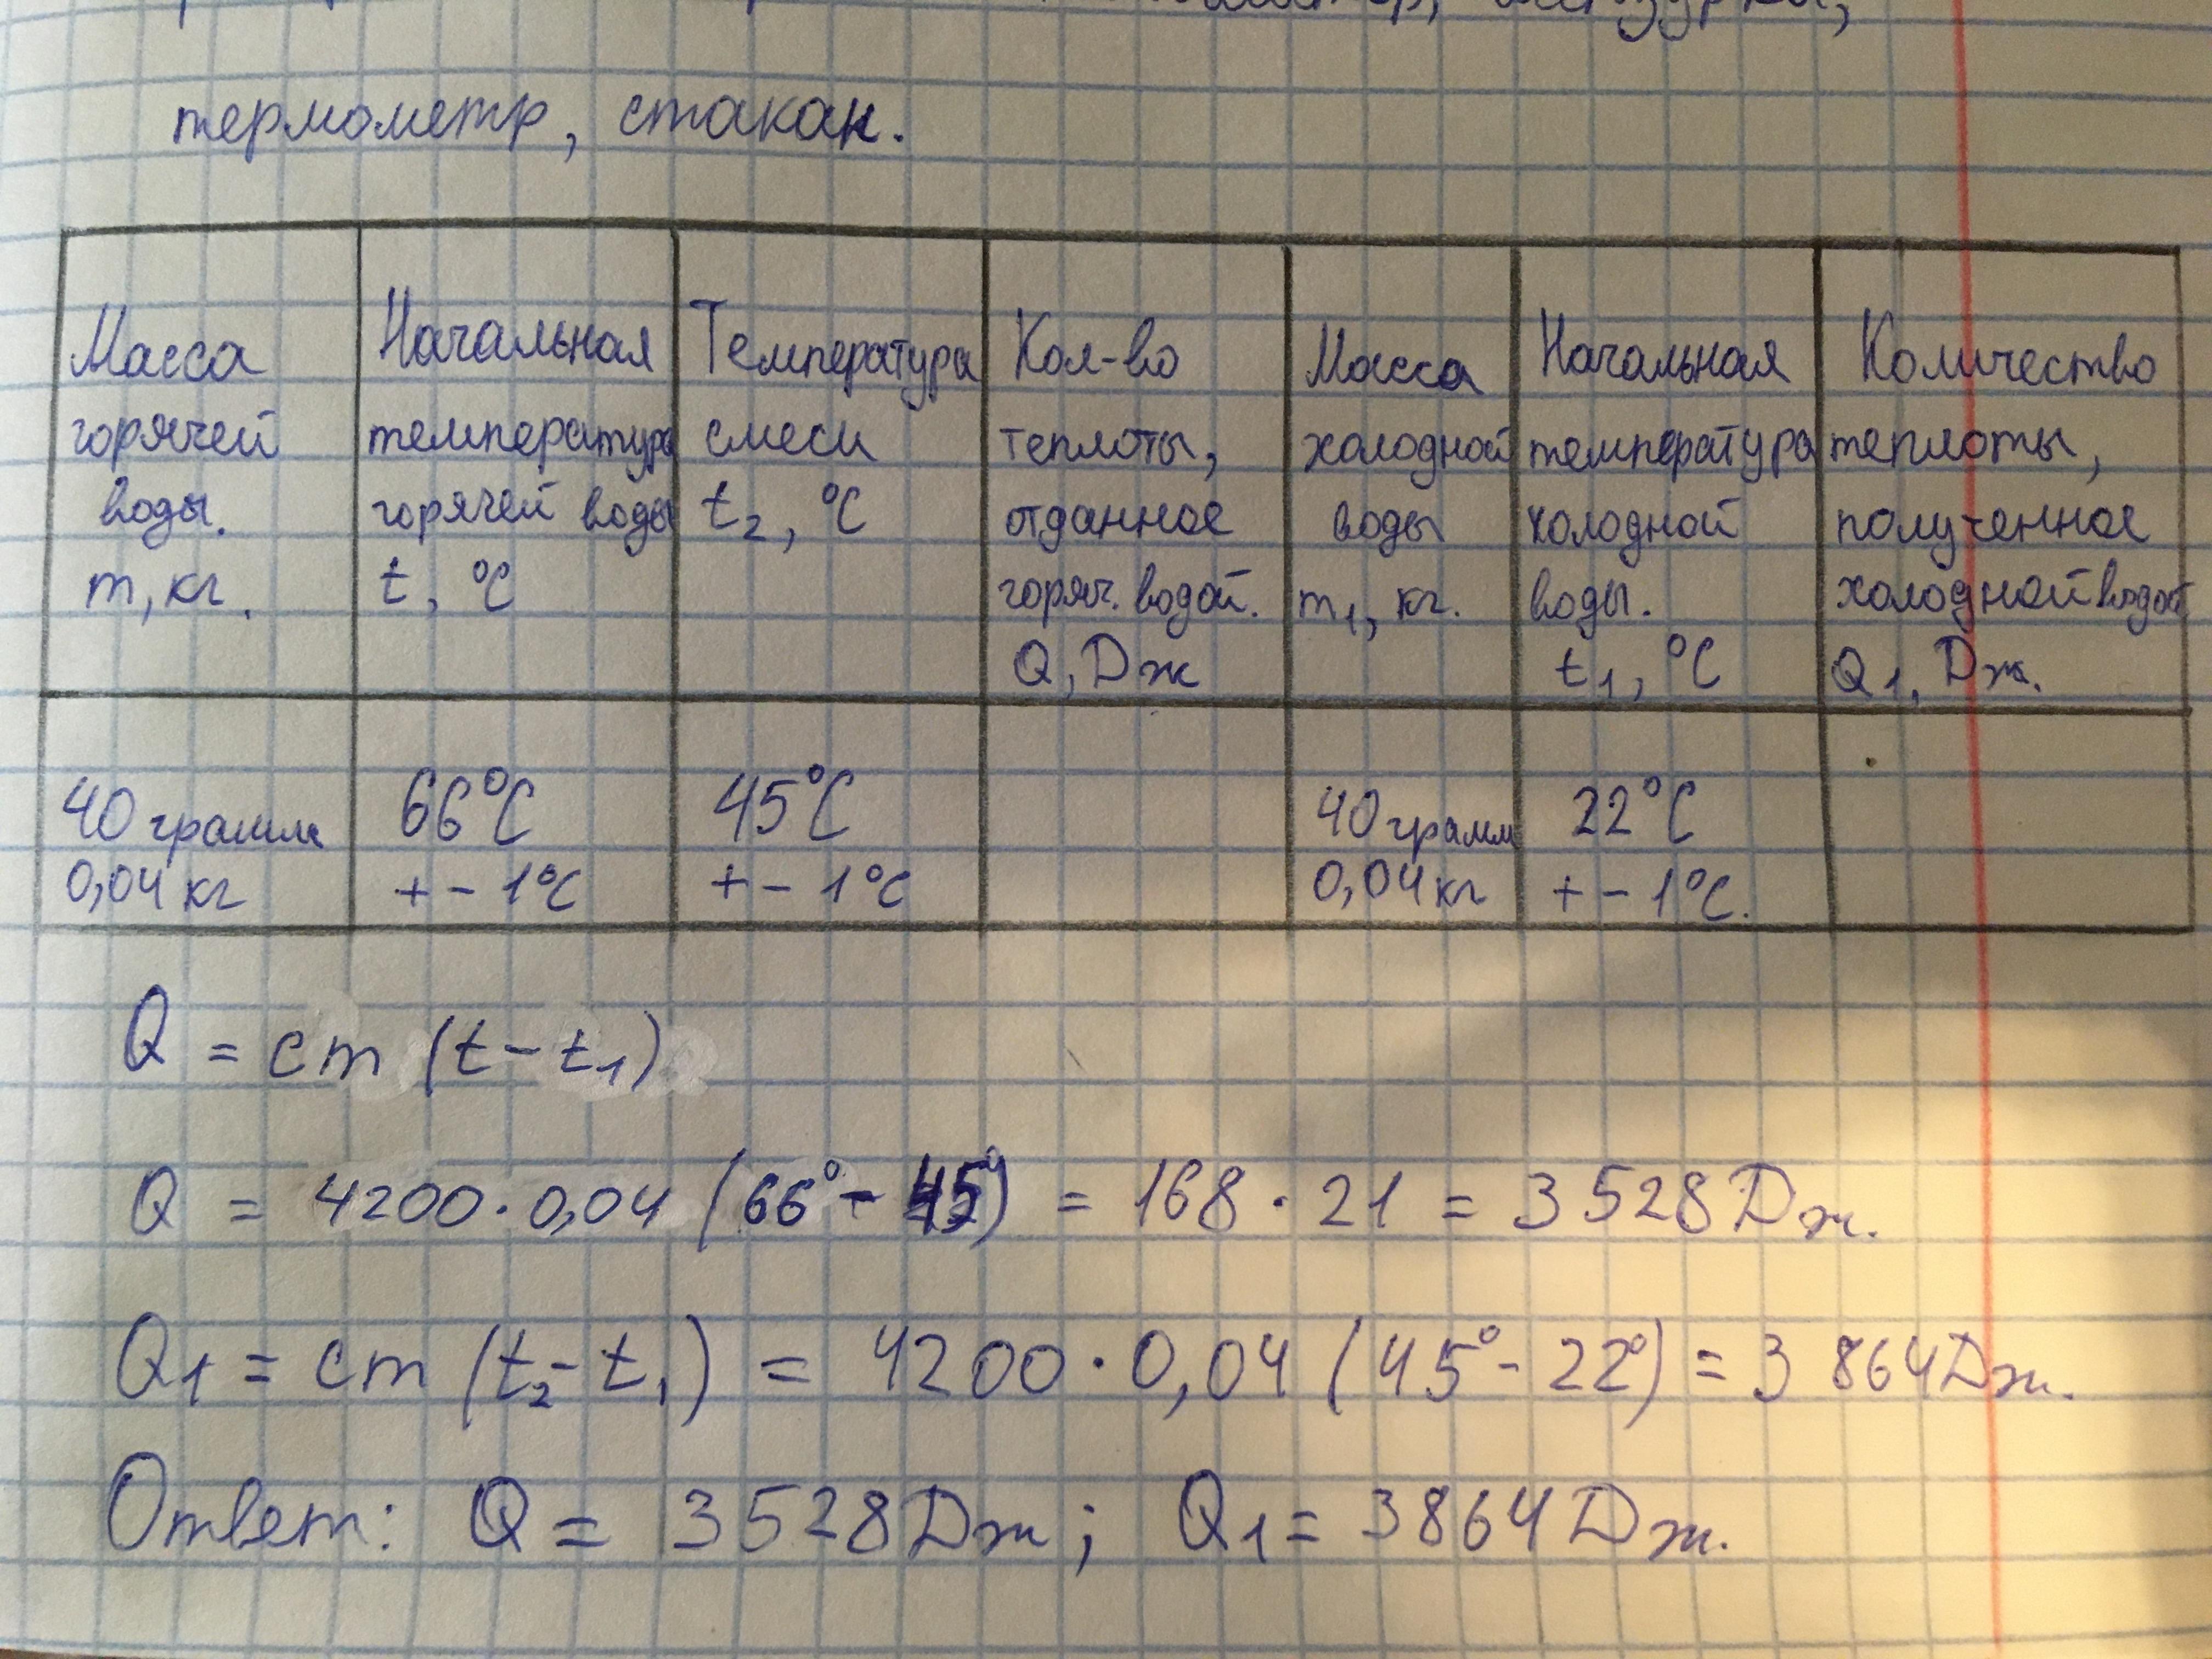 термометр, стакан.
Масса
горячей
воды.
m, кг.
Начальная
температура
горячей воды
t, °C
Температура
смеси
t2, °C
Кол-во
теплоты,
отданное
горяч. водой.
Q, Дж
Масса
холодной
воды
m1, кг.
Начальная
температура
холодной
воды.
t1, °C
Количество
теплоты,
полученное
холодной водой
Q1, Дж.
40 грамм
0,04 кг
66°C
+ - 1°C
45°C
+ - 1°C
40 грамм
0,04 кг
22°C
+ - 1°C.
Q = cm (t - t1)
Q = 4200 · 0,04 (66° - 45°) = 168 · 21 = 3528 Дж.
Q1 = cm (t2 - t1) = 4200 · 0,04 (45° - 22°) = 3 864 Дж.
Ответ: Q = 3528 Дж; Q1 = 3864 Дж.